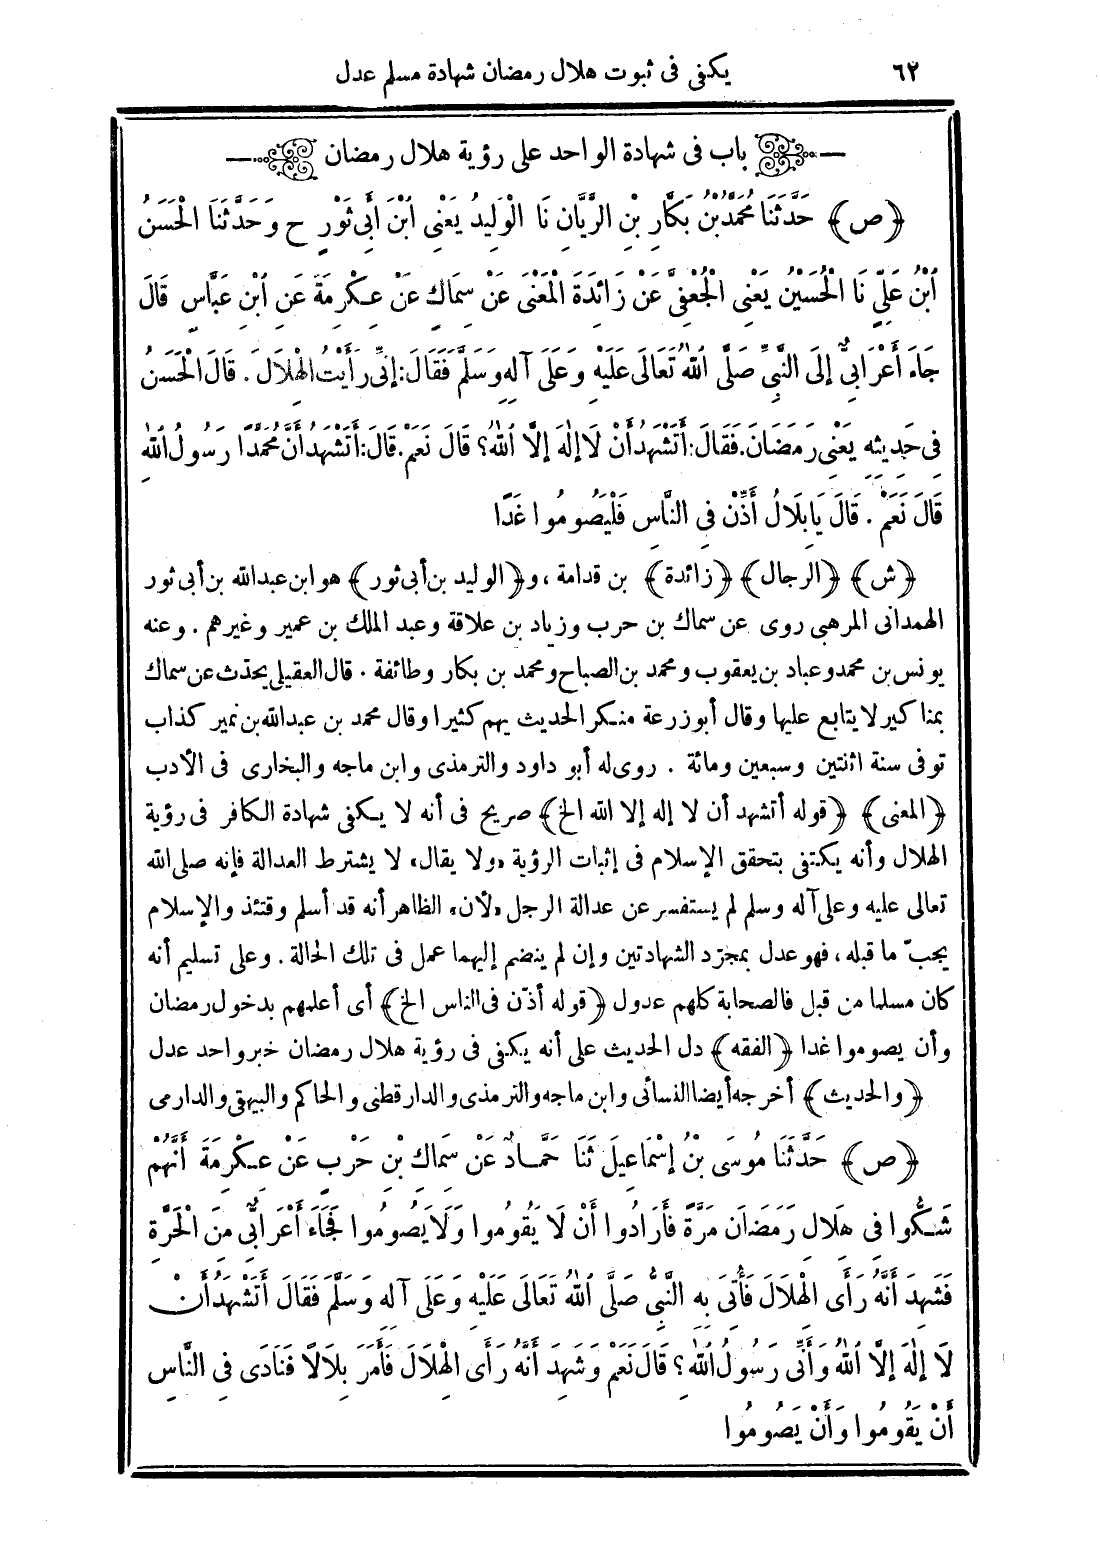 ٦٢ يكفى فى ثبوت هلال رمضان شهادة مسلم عدل
باب فى شهادة الواحد على رؤية هلال رمضان
﴿ص﴾ حَدَّثَنَا مُحَمَّدُ بْنُ بَكَّارِ بْنِ الرَّيَّانِ نَا الْوَلِيدُ يَعْنِى ابْنَ أَبِى ثَوْرٍ ح وَحَدَّثَنَا الْحَسَنُ
ابْنُ عَلِيٍّ نَا الْحُسَيْنُ يَعْنِى الْجُعْفِىَّ عَنْ زَائِدَةَ الْمَعْنَى عَنْ سِمَاكٍ عَنْ عِكْرِمَةَ عَنِ ابْنِ عَبَّاسٍ قَالَ
جَاءَ أَعْرَابِىٌّ إِلَى النَّبِىِّ صَلَّى اللهُ تَعَالَى عَلَيْهِ وَعَلَى آلِهِ وَسَلَّمَ فَقَالَ: إِنِّى رَأَيْتُ الْهِلَالَ. قَالَ الْحَسَنُ
فِى حَدِيثِهِ يَعْنِى رَمَضَانَ. فَقَالَ: أَتَشْهَدُ أَنْ لَا إِلَهَ إِلَّا اللهُ؟ قَالَ نَعَمْ. قَالَ: أَتَشْهَدُ أَنَّ مُحَمَّدًا رَسُولُ اللهِ
قَالَ نَعَمْ. قَالَ يَا بِلَالُ أَذِّنْ فِى النَّاسِ فَلْيَصُومُوا غَدًا
﴿ش﴾ ﴿الرجال﴾ ﴿زائدة﴾ بن قدامة، و﴿الوليد بن أبى ثور﴾ هو ابن عبدالله بن أبى ثور
الهمدانى المرهبى روى عن سماك بن حرب وزياد بن علاقة وعبد الملك بن عمير وغيرهم. وعنه
يونس بن محمد وعباد بن يعقوب ومحمد بن الصباح ومحمد بن بكار وطائفة. قال العقيلى يحدّث عن سماك
بمناكير لا يتابع عليها وقال أبو زرعة منكر الحديث يهم كثيرا وقال محمد بن عبدالله بن نمير كذاب
توفى سنة اثنتين وسبعين ومائة. روى له أبو داود والترمذى وابن ماجه والبخارى فى الأدب
﴿المعنى﴾ ﴿قوله أتشهد أن لا إله إلا الله الخ﴾ صريح فى أنه لا يكفى شهادة الكافر فى رؤية
الهلال وأنه يكتفى بتحقق الإسلام فى إثبات الرؤية «ولا يقال» لا يشترط العدالة فإنه صلى الله
تعالى عليه وعلى آله وسلم لم يستفسر عن عدالة الرجل «لأن» الظاهر أنه قد أسلم وقتئذ والإسلام
يجبّ ما قبله، فهو عدل بمجرّد الشهادتين وإن لم ينضم إليهما عمل فى تلك الحالة. وعلى تسليم أنه
كان مسلما من قبل فالصحابة كلهم عدول ﴿قوله أذّن فى الناس الخ﴾ أى أعلمهم بدخول رمضان
وأن يصوموا غدا ﴿الفقه﴾ دل الحديث على أنه يكفى فى رؤية هلال رمضان خبر واحد عدل
﴿والحديث﴾ أخرجه أيضا النسائى وابن ماجه والترمذى والدارقطنى والحاكم والبيهقى والدارمى
﴿ص﴾ حَدَّثَنَا مُوسَى بْنُ إِسْمَاعِيلَ ثَنَا حَمَّادٌ عَنْ سِمَاكِ بْنِ حَرْبٍ عَنْ عِكْرِمَةَ أَنَّهُمْ
شَكُّوا فِى هِلَالِ رَمَضَانَ مَرَّةً فَأَرَادُوا أَنْ لَا يَقُومُوا وَلَا يَصُومُوا فَجَاءَ أَعْرَابِىٌّ مِنَ الْحَرَّةِ
فَشَهِدَ أَنَّهُ رَأَى الْهِلَالَ فَأُتِىَ بِهِ النَّبِىُّ صَلَّى اللهُ تَعَالَى عَلَيْهِ وَعَلَى آلِهِ وَسَلَّمَ فَقَالَ أَتَشْهَدُ أَنْ
لَا إِلَهَ إِلَّا اللهُ وَأَنِّى رَسُولُ اللهِ؟ قَالَ نَعَمْ وَشَهِدَ أَنَّهُ رَأَى الْهِلَالَ فَأَمَرَ بِلَالًا فَنَادَى فِى النَّاسِ
أَنْ يَقُومُوا وَأَنْ يَصُومُوا